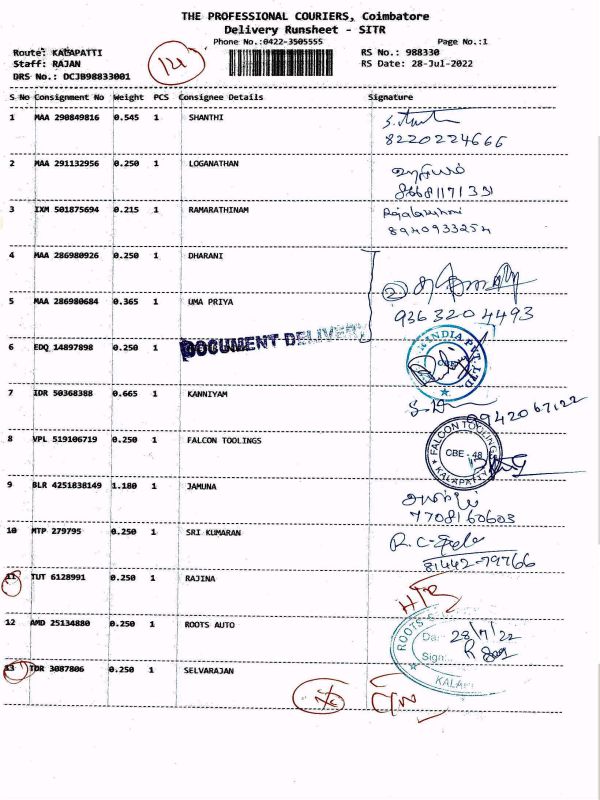 THE PROFESSIONAL COURIERS, Coimbatore
Delivery Runsheet - SITR
Phone No.:0422-3505555 Page No.:1
Route: KALAPATTI RS No.: 988330
Staff: RAJAN RS Date: 28-Jul-2022
DRS No.: DCJB98833001
S No Consignment No Weight PCS Consignee Details Signature
1 MAA 290849816 0.545 1 SHANTHI
8220224666
2 MAA 291132956 0.250 1 LOGANATHAN
3 IXM 501875694 0.215 1 RAMARATHINAM Rajalakshmi
8940933254
4 MAA 286980926 0.250 1 DHARANI
2
5 MAA 286980684 0.365 1 UMA PRIYA 9363204493
DOCUMENT DELIVERY
6 EDQ 14897898 0.250 1 INDIA PVT. LTD
7 IDR 50368388 0.665 1 KANNIYAM
9942067122
8 VPL 519106719 0.250 1 FALCON TOOLINGS FALCON TOOLING
CBE - 48
KALAPATTI
9 BLR 4251838149 1.180 1 JAMUNA
7708160603
10 MTP 279795 0.250 1 SRI KUMARAN R.C-
81442-79766
11 TUT 6128991 0.250 1 RAJINA
12 AMD 25134880 0.250 1 ROOTS AUTO ROOTS
Da: 28/7/22
Sign:
KALAP
13 TDR 3087806 0.250 1 SELVARAJAN